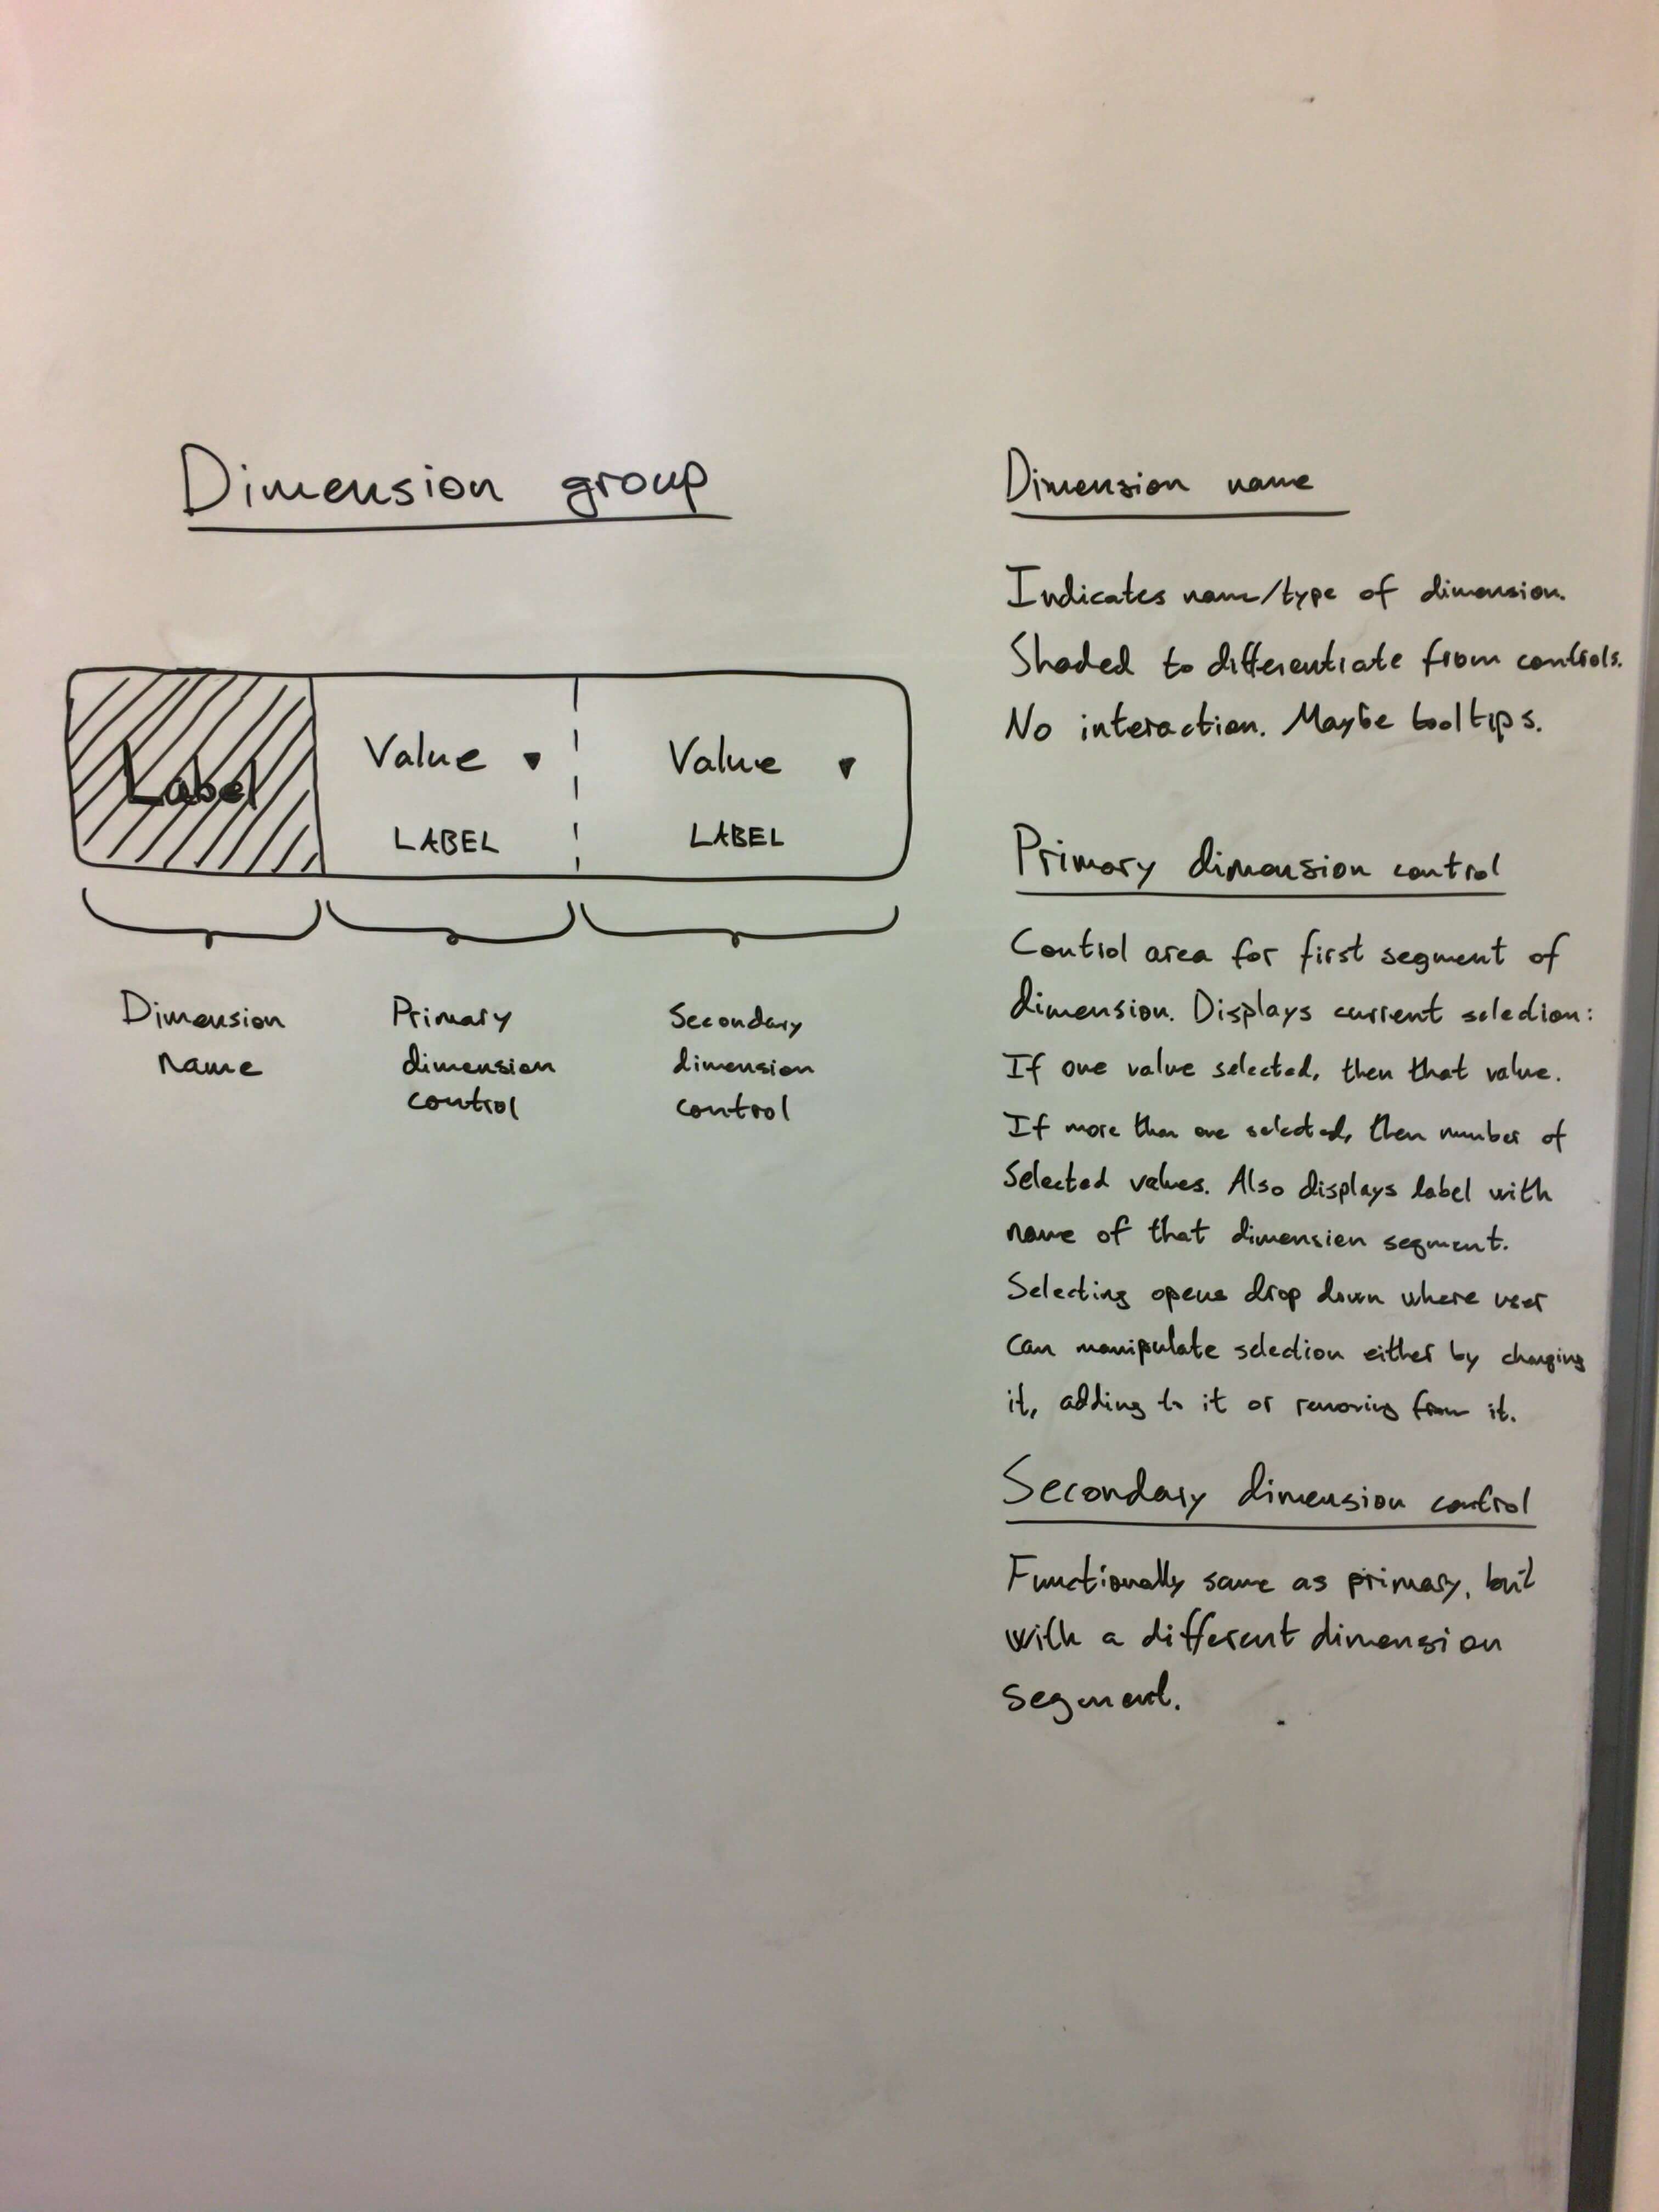 Dimension group
Label
Value
LABEL
Value
LABEL
Dimension
name
Primary
dimension
control
Secondary
dimension
control
Dimension name
Indicates name/type of dimension.
Shaded to differentiate from controls.
No interaction. Maybe tooltips.
Primary dimension control
Control area for first segment of
dimension. Displays current selection:
If one value selected, then that value.
If more than one selected, then number of
selected values. Also displays label with
name of that dimension segment.
Selecting opens drop down where user
can manipulate selection either by changing
it, adding to it or removing from it.
Secondary dimension control
Functionally same as primary, but
with a different dimension
segment.